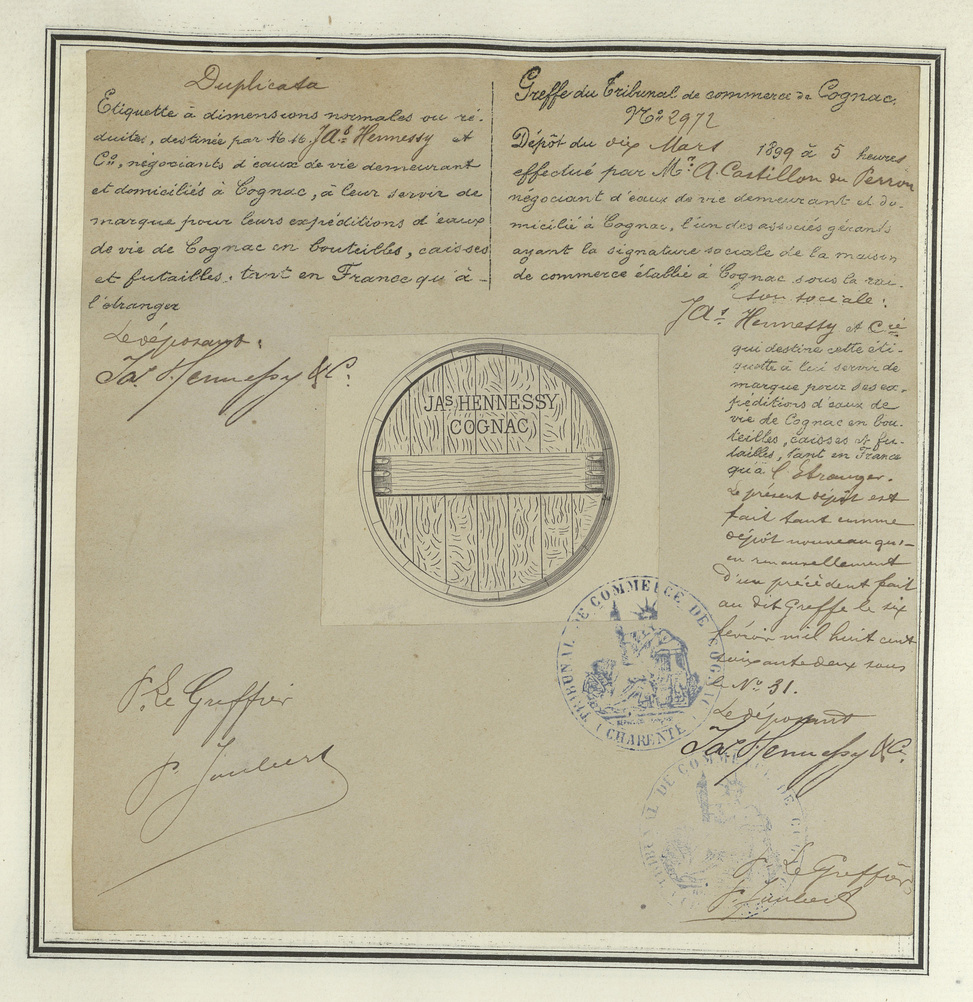 Duplicata
Etiquette à dimensions normales ou ré-
duites, destinée par M.M. Jas Hennessy et
Cie, négociants d'eaux de vie demeurant
et domiciliés à Cognac, à leur servir de
marque pour leurs expéditions d'eaux
de vie de Cognac en bouteilles, caisses
et futailles, tant en France qu'à
l'étranger
Le déposant.
Jas Hennessy & Co.
P. Le Greffier
P. Joubert
Greffe du Tribunal de commerce de Cognac.
No 2972
Dépôt du dix Mars 1899 à 5 heures
effectué par Mr. A. Castillon du Perron
négociant d'eaux de vie demeurant et do-
micilié à Cognac, l'un des associés gérants
ayant la signature sociale de la maison
de commerce établie à Cognac sous la rai-
son sociale:
Jas Hennessy et Cie
qui destine cette éti-
quette à lui servir de
marque pour ses ex-
péditions d'eaux de
vie de Cognac en bou-
teilles, caisses et fu-
tailles, tant en France
qu'à l'étranger.
Le présent dépôt est
fait tant comme
dépôt nouveau qu'-
en renouvellement
d'un précédent fait
au dit Greffe le six
février mil huit cent
soixante deux sous
le No 31.
Le déposant
Jas Hennessy & Co.
Le Greffier
P. Joubert
JAS HENNESSY
COGNAC
TRIBUNAL DE COMMERCE DE COGNAC
(CHARENTE)
TRIBUNAL DE COMMERCE DE CO